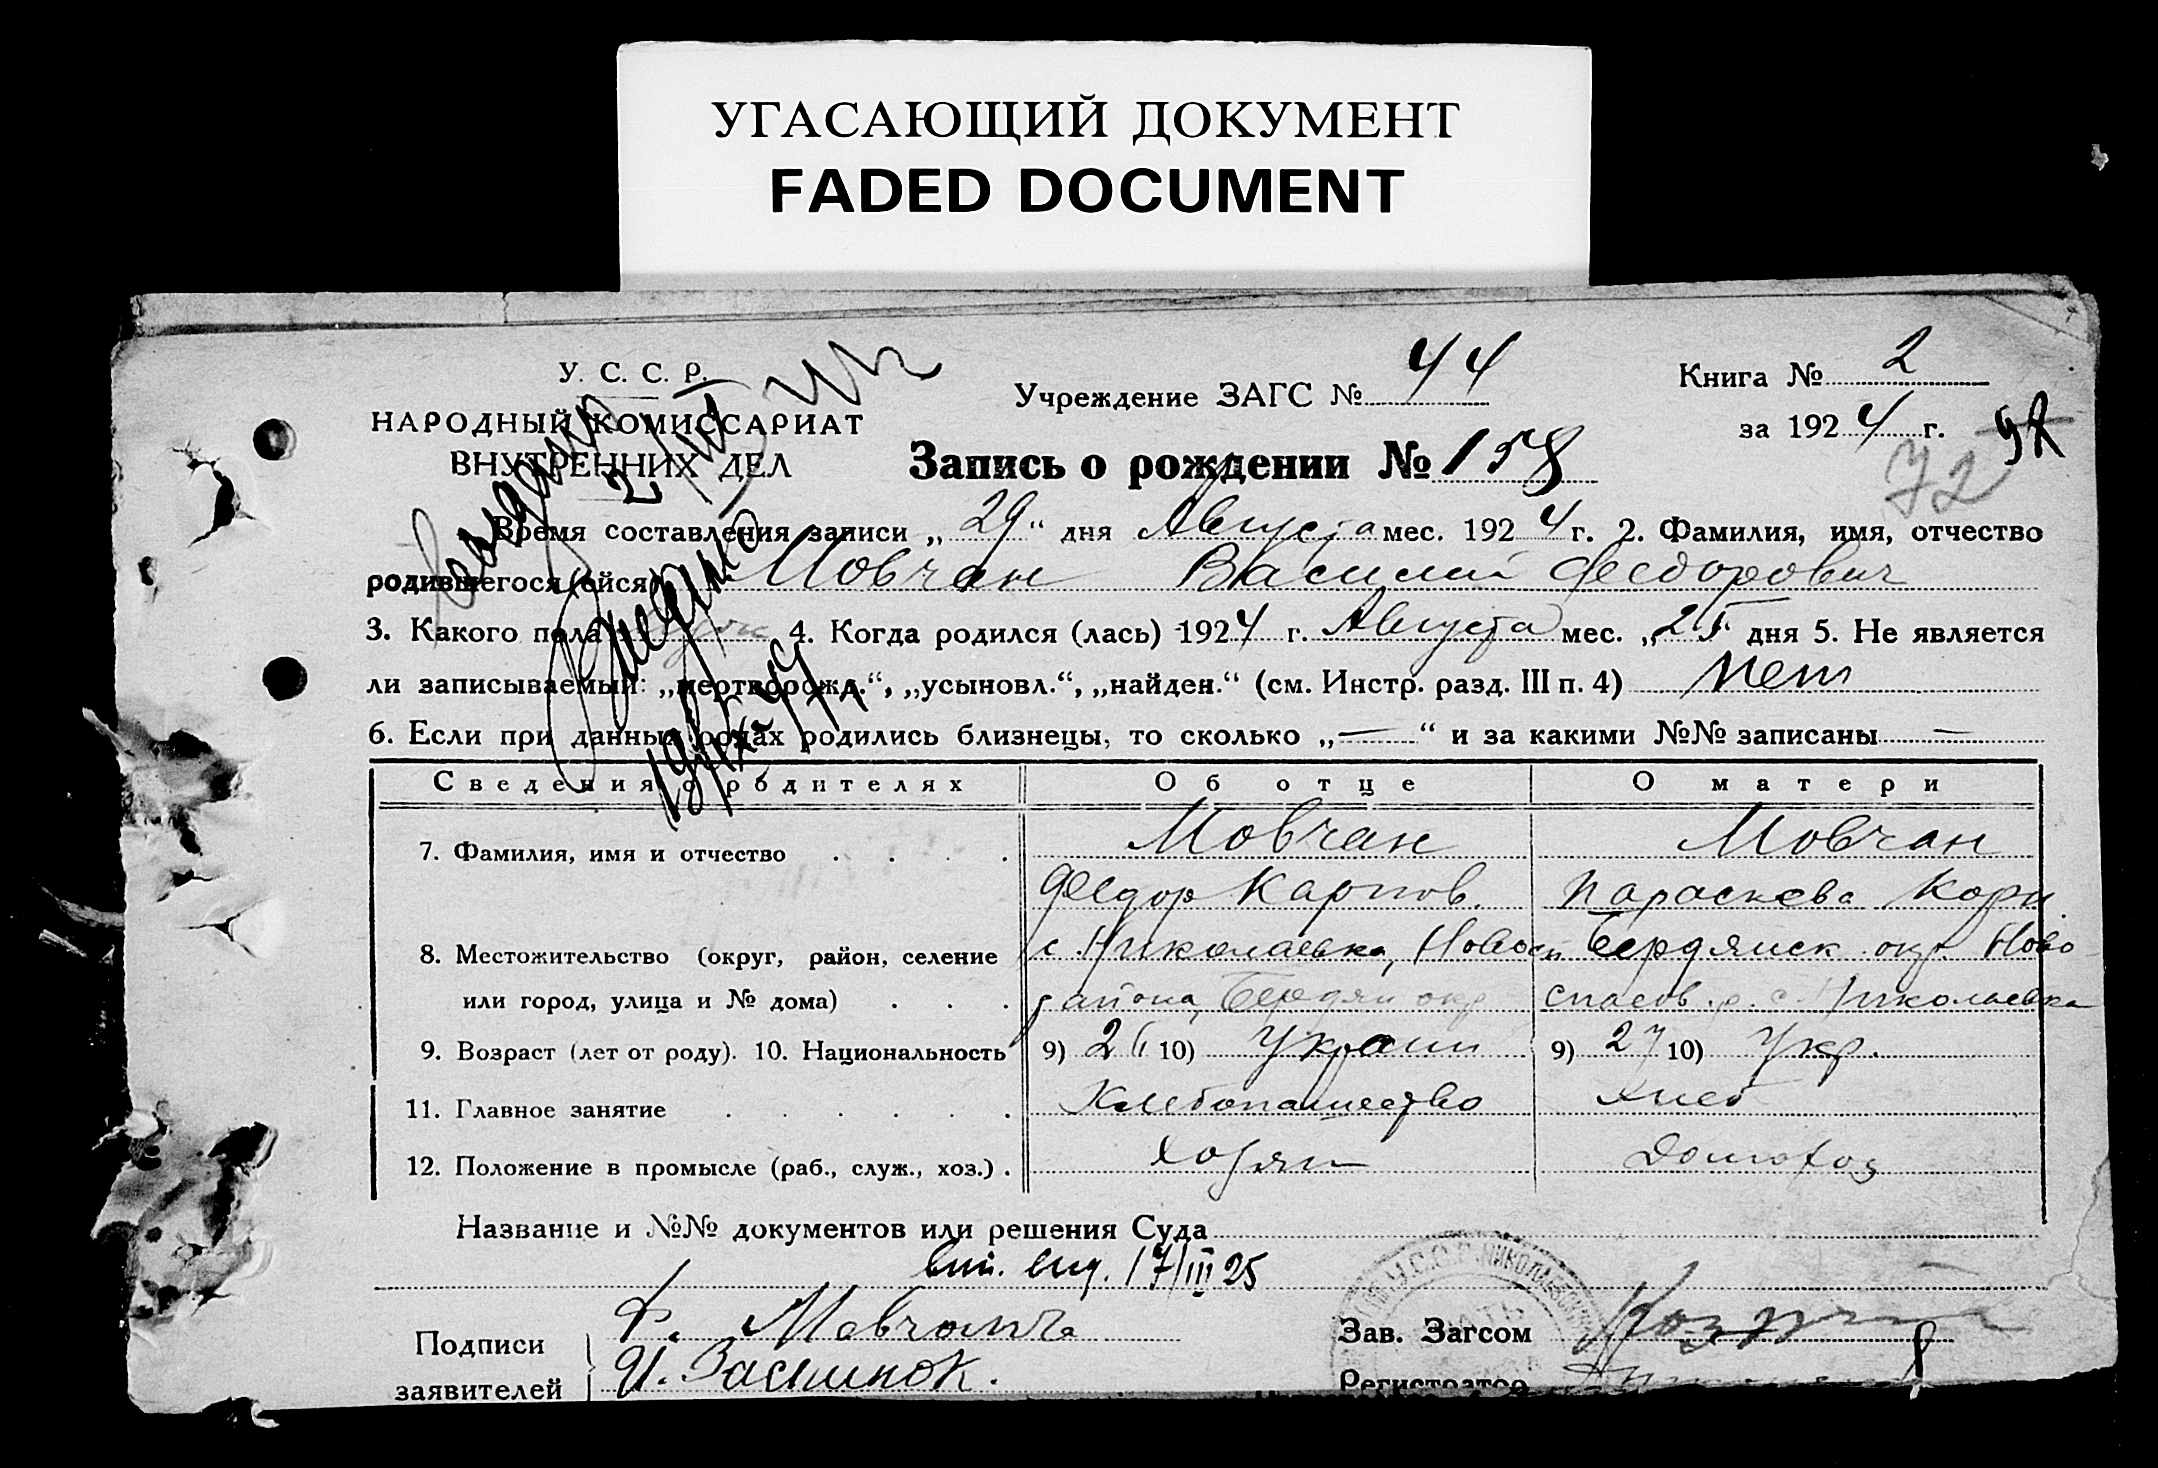 УГАСАЮЩИЙ ДОКУМЕНТ
FADED DOCUMENT
У. С. С. Р.
НАРОДНЫЙ КОМИССАРИАТ
ВНУТРЕННИХ ДЕЛ
Учреждение ЗАГС № 44
Книга № 2
за 1924 г.
72
Запись о рождении № 158
Время составления записи „29“ дня Августа мес. 1924 г. 2. Фамилия, имя, отчество
родившегося (ейся) Мовчан Василий Феодорович
3. Какого пола 4. Когда родился (лась) 1924 г. Августа мес. „25“ дня 5. Не является
ли записываемый: „мертворожд.“, „усыновл.“, „найден.“ (см. Инстр. разд. III п. 4) Нет
6. Если при данных родах родились близнецы, то сколько „—“ и за какими №№ записаны —
Сведения о родителях Об отце О матери
7. Фамилия, имя и отчество Мовчан Мовчан
Федор Карпов. Параскева Корн.
8. Местожительство (округ, район, селение с. Николаевка, Новосп Бердянск окр. Ново
или город, улица и № дома) района, Бердян окр спасов. р. с. Николаевка
9. Возраст (лет от роду). 10. Национальность 9) 26 10) Украин 9) 27 10) Укр.
11. Главное занятие Хлебопашество Хлеб
12. Положение в промысле (раб., служ., хоз.) Хозяин Домохоз
Название и №№ документов или решения Суда
17/III 25
Подписи Ф. Мовчан Зав. Загсом
заявителей И. Регистратор